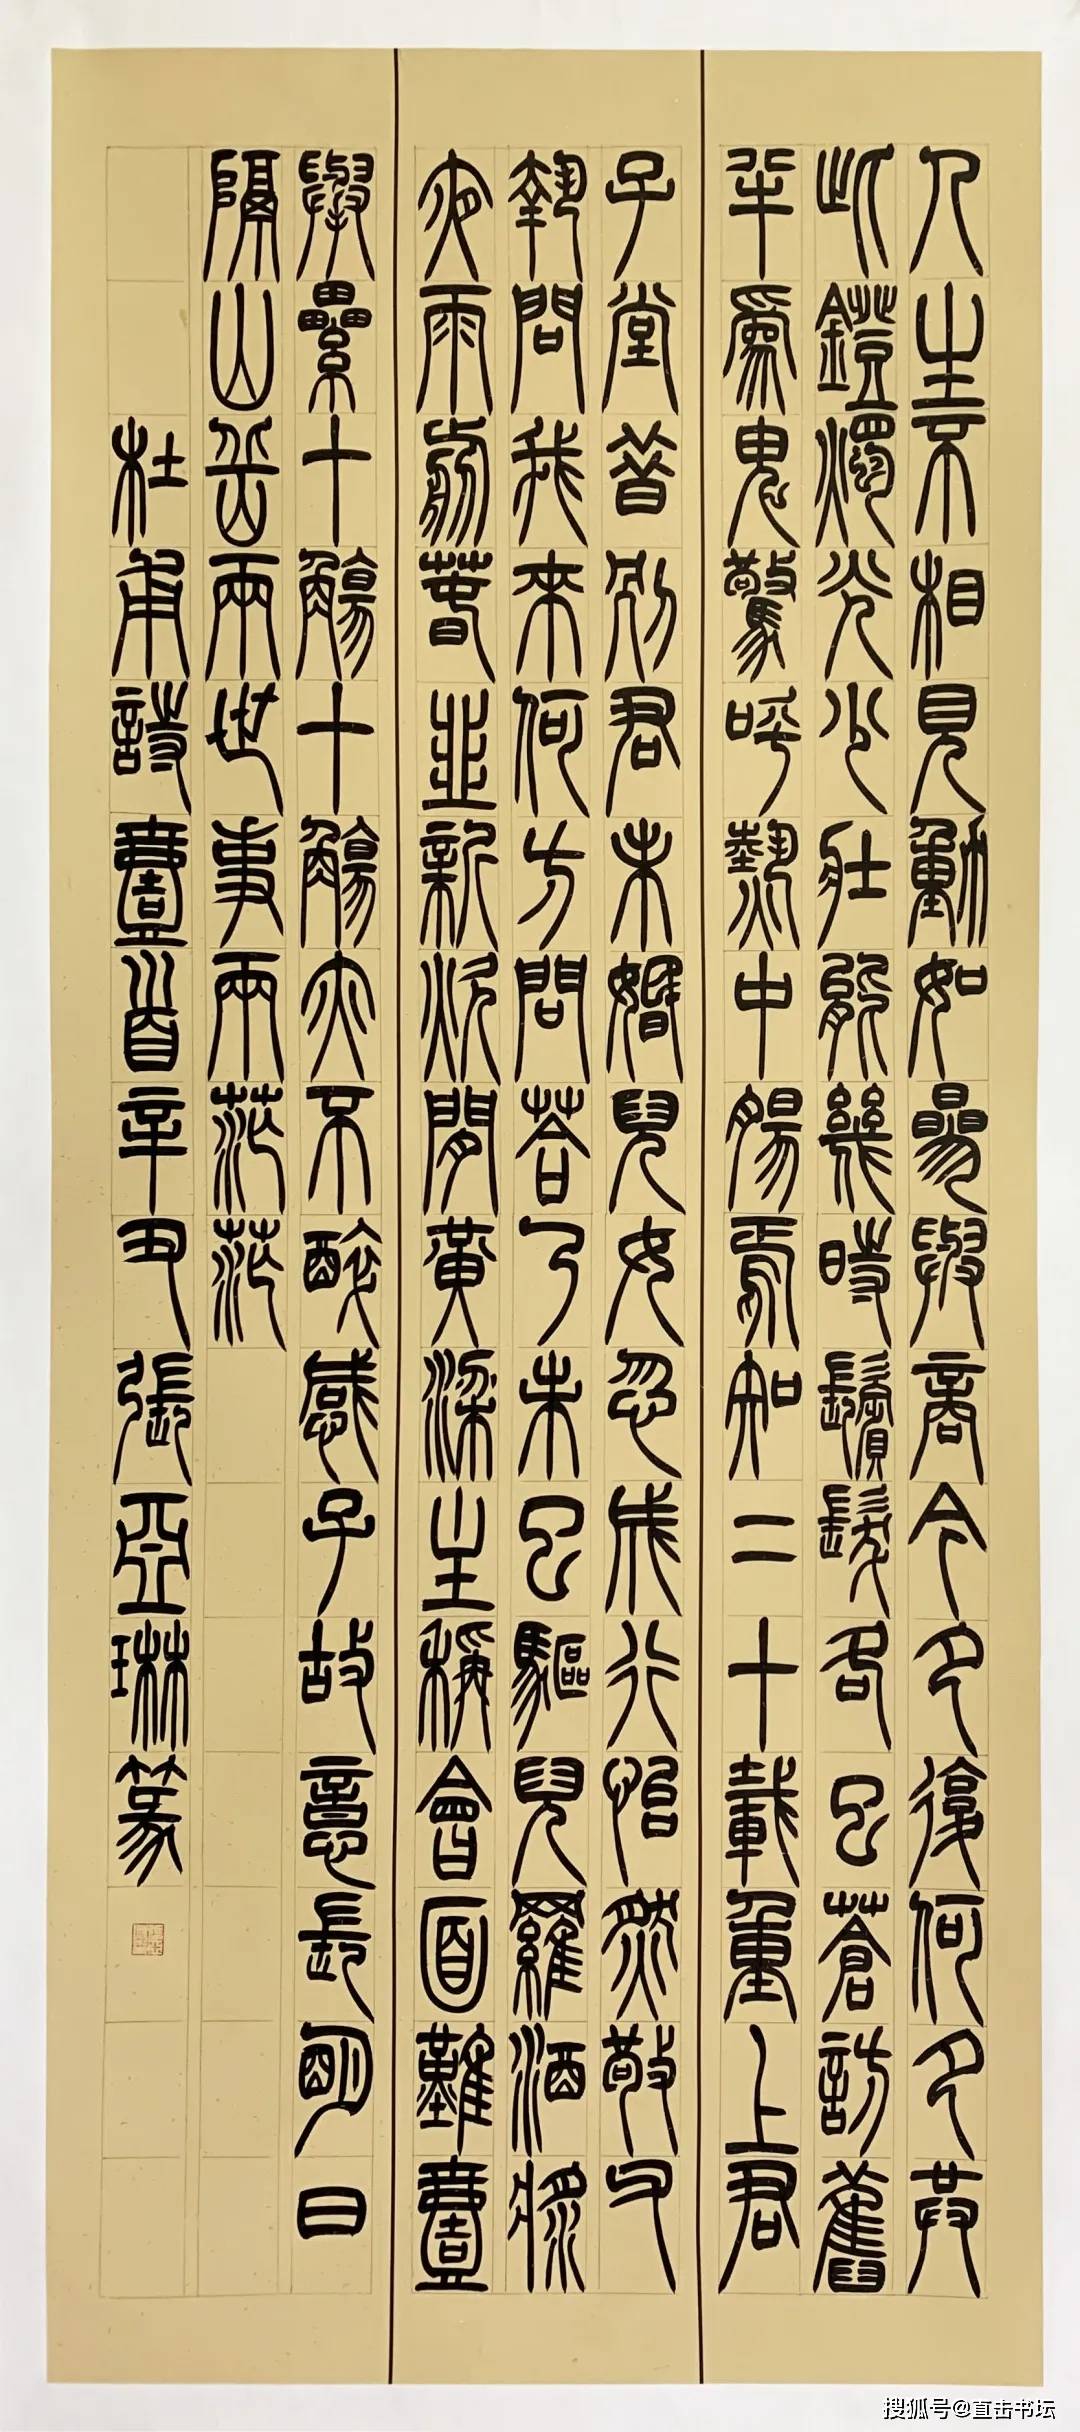 人生不相見動如參與商今夕復何夕共
此鐙燭光少壯能幾時鬢髮各已蒼訪舊
半為鬼驚呼熱中腸焉知二十載重上君
子堂昔別君未婚兒女忽成行怡然敬父
執問我來何方問答乃未已驅兒羅酒漿
夜雨剪春韭新炊間黃粱主稱會面難壹
舉累十觴十觴亦不醉感子故意長明日
隔山岳兩世事兩茫茫
杜甫詩壹首辛丑張亞琳篆
搜狐号@直击书坛